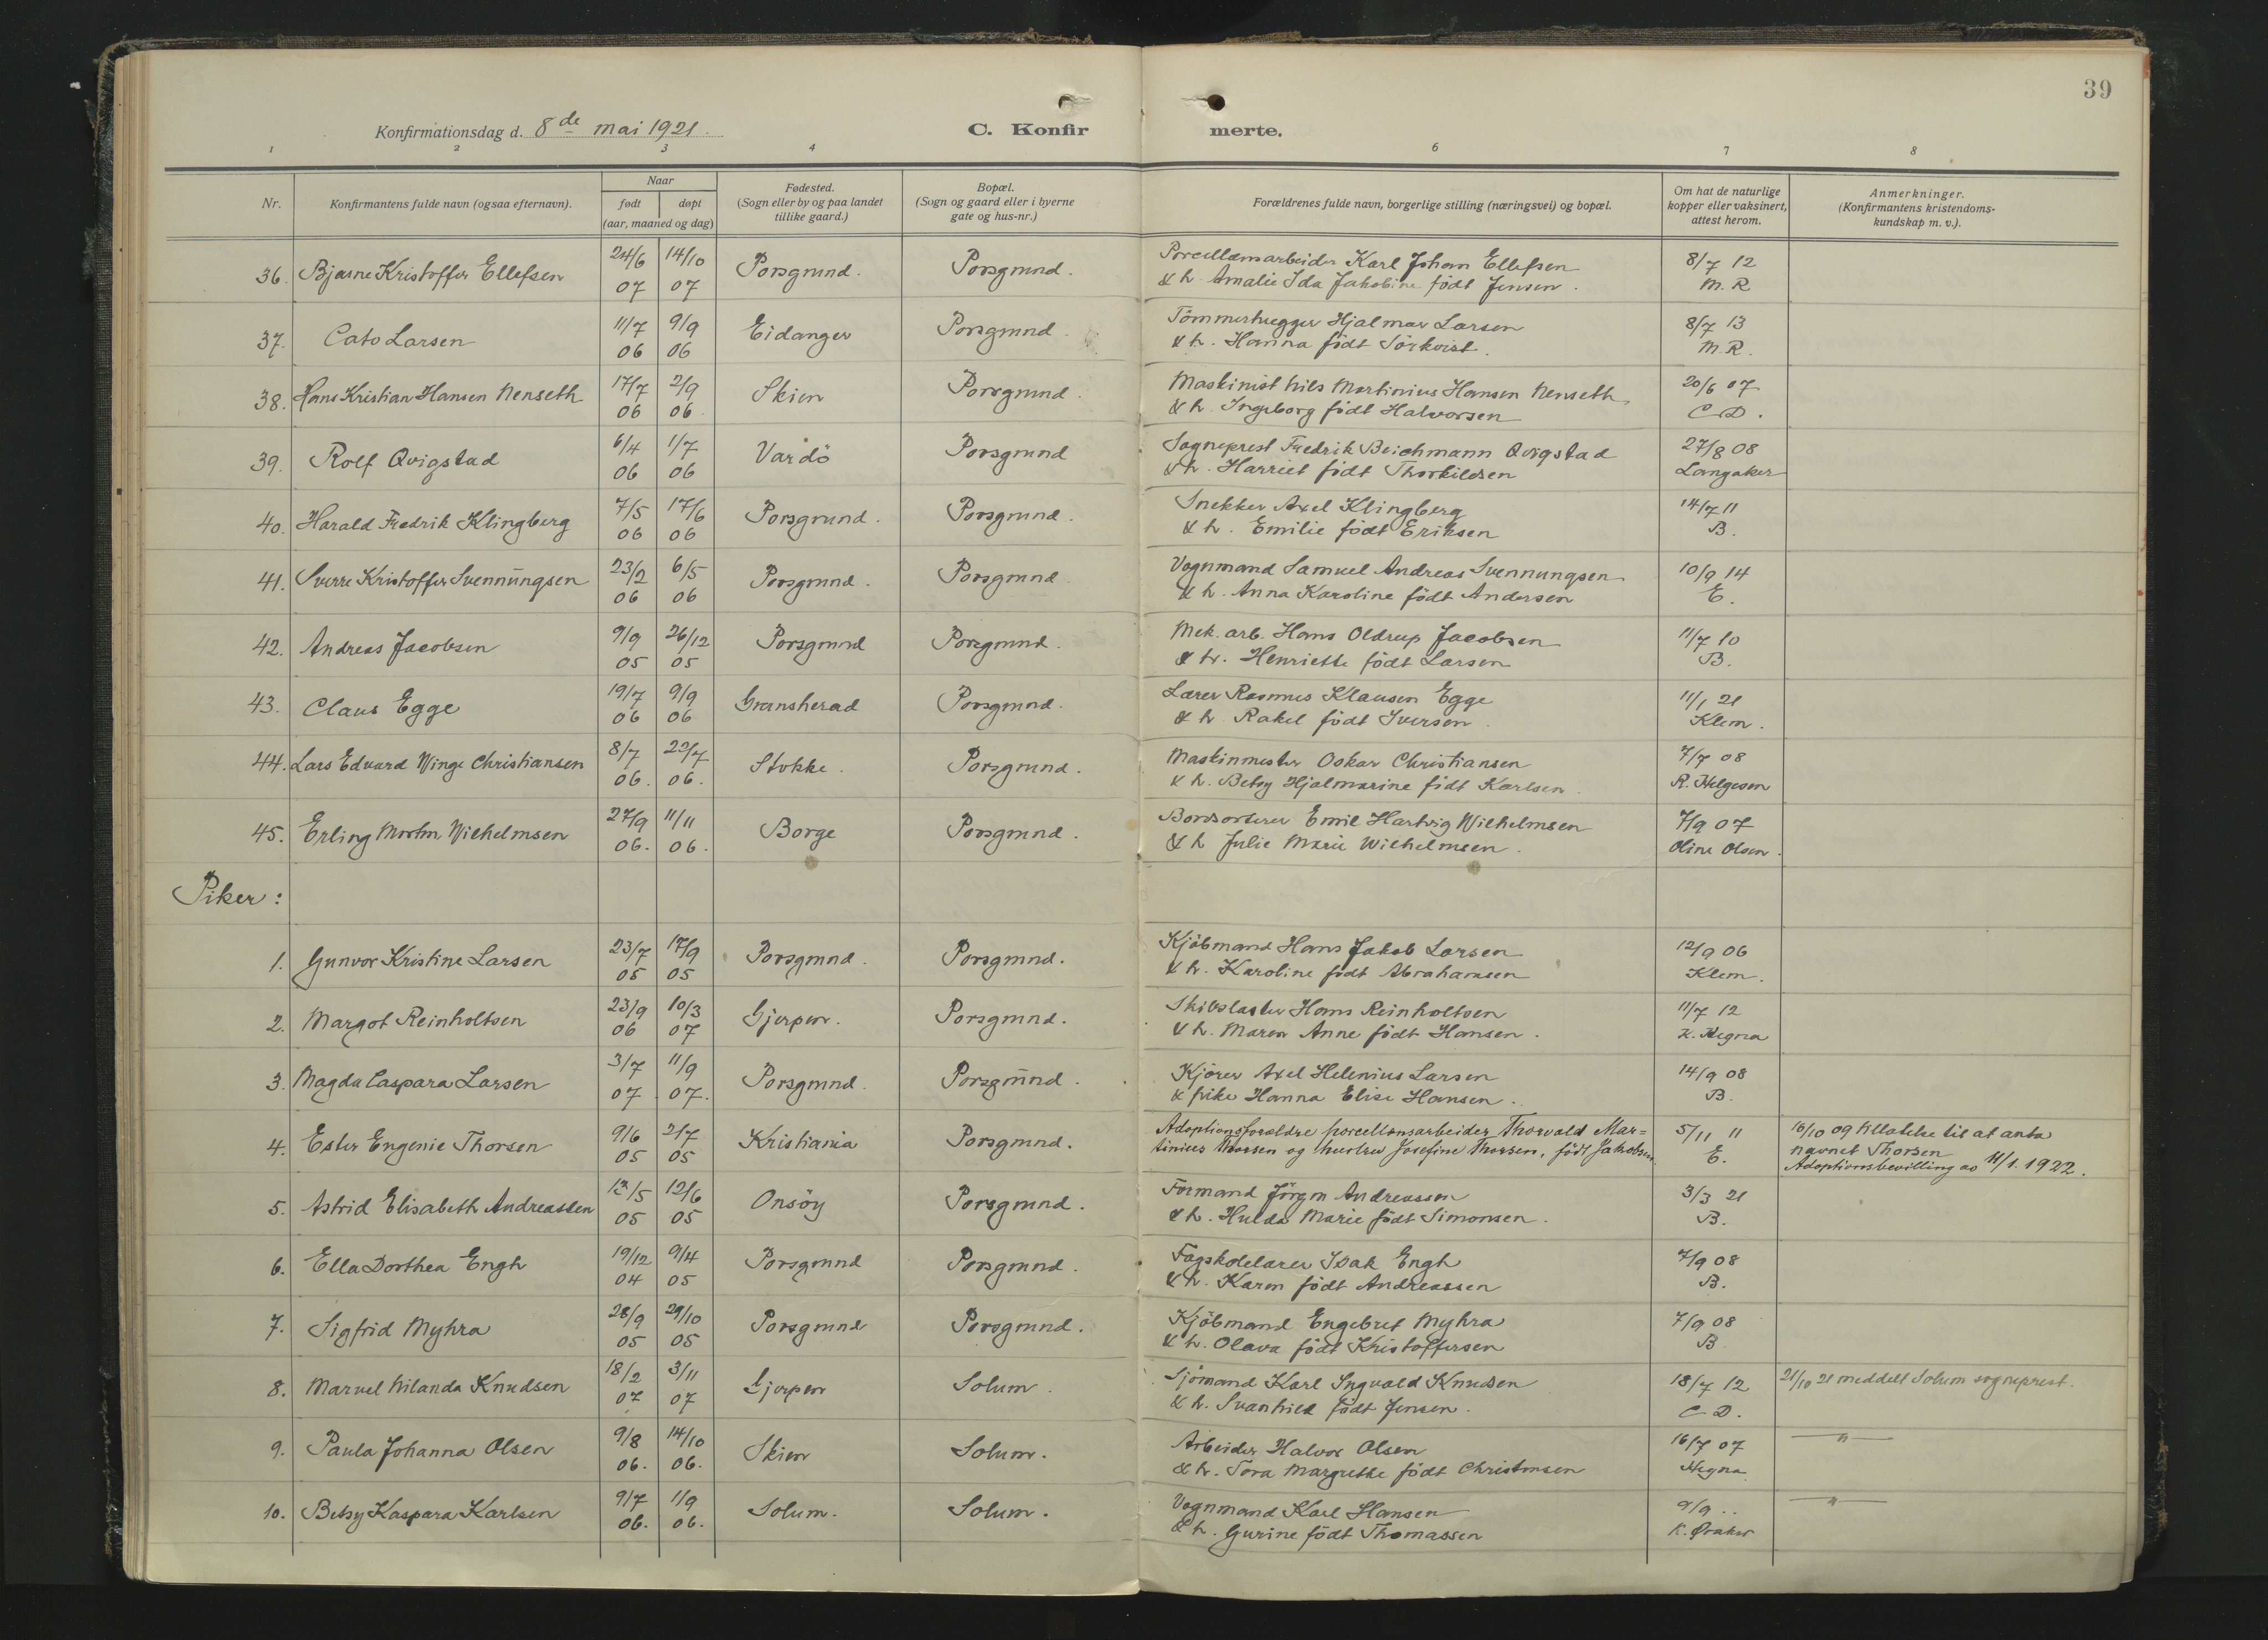 39
Konfirmationsdag d. 8de mai 1921.
C. Konfir merte.
1 2 3 4 6 7 8
Nr.
Konfirmantens fulde navn (ogsaa efternavn).
Naar
født døpt
(aar, maaned og dag)
Fødested.
(Sogn eller by og paa landet
tillike gaard.)
Bopæl.
(Sogn og gaard eller i byerne
gate og hus-nr.)
Forældrenes fulde navn, borgerlige stilling (næringsvei) og bopæl.
Om hat de naturlige
kopper eller vaksinert,
attest herom.
Anmerkninger.
(Konfirmantens kristendoms-
kundskap m. v.).
36. Bjarne Kristoffer Ellefsen 24/6 14/10 Porsgrund. Porsgrund. Porcellænsarbeider Karl Johan Ellefsen 8/7 12
07 07 & h. Amalie Ida Jakobine født Jensen. M. R
37. Cato Larsen 11/7 9/9 Eidanger Porsgrund. Tömmerhugger Hjalmar Larsen 8/7 13
06 06 & h. Hanna født Sörkvist. M. R.
38. Hans Kristian Hansen Nenseth 17/7 2/9 Skien Porsgrund. Maskinist Nils Martinius Hansen Nenseth 20/6 07
06 06. & h. Ingeborg født Halvorsen C. D.
39. Rolf Qvigstad 6/4 1/7 Vardö Porsgrund Sogneprest Fredrik Beichmann Qvigstad 27/8 08
06 06 & h. Harriet født Thorkildsen Langaker
40. Harald Fredrik Klingberg 7/5 17/6 Porsgrund. Porsgrund. Snekker Axel Klingberg 14/7 11
06 06 & h. Emilie født Eriksen B.
41. Sverre Kristoffer Svennungsen 23/2 6/5 Porsgrund. Porsgrund Vognmand Samuel Andreas Svennungsen 10/9 14
06 06 & h. Anna Karoline født Andersen E.
42. Andreas Jacobsen 9/9 26/12 Porsgrund Porsgrund. Mek. arb. Hans Oldrup Jacobsen 11/7 10
05 05 & h. Henriette født Larsen B.
43. Claus Egge 19/7 9/9 Gransherad Porsgrund. Lærer Rasmus Klausen Egge 11/1 21
06 06 & h. Rakel født Iversen. Klem.
44. Lars Edvard Winge Christiansen 8/7 22/7 Stokke. Porsgrund. Maskinmester Oskar Christiansen 7/7 08
06. 06. & h. Betsy Hjalmarine født Karlsen. R. Helgesen
45. Erling Martin Wilhelmsen 27/9 11/11 Borge Porsgrund. Bordsorterer Emil Hartvig Wilhelmsen 7/9 07
06. 06. & h Julie Marie Wilhelmsen. Oline Olsen.
Piker:
1. Gunvor Kristine Larsen 23/7 17/9 Porsgrund. Porsgrund. Kjöbmand Hans Jakob Larsen 12/9 06
05 05 & h. Karoline født Abrahamsen Klem.
2. Margot Reinholtsen 23/9 10/3 Gjerpen. Porsgrund. Skibslaster Hans Reinholtsen 11/7 12
06 07 & h. Maren Anne født Hansen. K. Hegna
3. Magda Caspara Larsen 3/7 11/9 Porsgrund. Porsgrund. Kjörer Axel Helenius Larsen 14/9 08
07 07. & pike Hanna Elise Hansen. B.
4. Ester Engenie Thorsen 9/6 2/7 Kristiania Porsgrund. Adoptionsforældre porcellænsarbeider Thorvald Mar= 5/11 11 16/10 09 tillatelse til at anta
05 05 tinius Thorsen og hustru Josefine Thorsen, født Jakobsen. E. navnet Thorsen
Adoptionsbevilling av 11/1. 1922.
5. Astrid Elisabeth Andreassen 13/5 12/6 Onsöy Porsgrund. Formand Jörgen Andreassen 3/3 21
05 05 & h. Hulda Marie født Simonsen. B.
6. Ella Dorthea Engh 19/12 9/4 Porsgrund Porsgrund. Fagskolelærer Isak Engh 7/9 08
04 05 & h. Karen født Andreassen B.
7. Sigfrid Myhra 28/9 29/10 Porsgrund Porsgrund. Kjöbmand Engebret Myhra 7/9 08
05 05 & h. Olava født Kristoffersen B
8. Marvel Milanda Knudsen 18/2 3/11 Gjerpen Solum. Sjömand Karl Ingvald Knudsen 18/7 12 21/10 21 meddelt Solum sogneprest.
07 07 & h. Svanhild født Jensen. C. D.
9. Paula Johanna Olsen 9/8 14/10 Skien Solum. Arbeider Halvor Olsen 16/7 07 — " —
06. 06. & h. Tora Margrethe født Christensen Hegna
10. Betsy Kaspara Karlsen 9/7 1/9 Solum. Solum. Vognmand Karl Hansen 9/9 .. — " —
06. 06. & h. Gurine født Thomassen K. Øraker